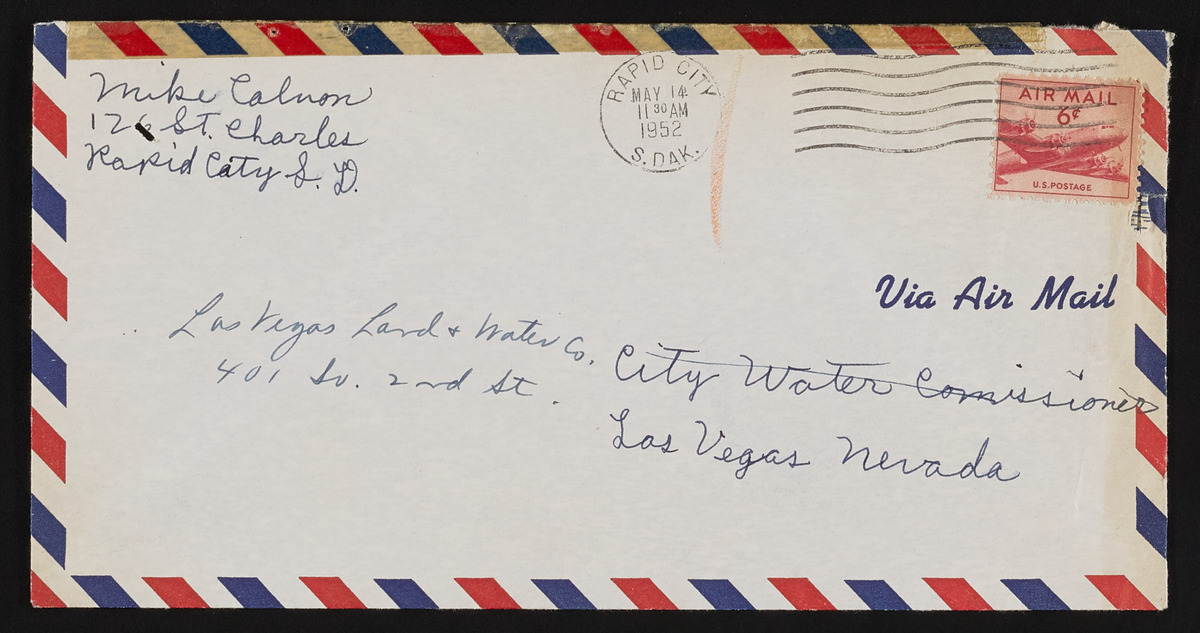 Mike Calnon
126 St. Charles
Rapid City S. D.
RAPID CITY
MAY 14
11 30 AM
1952
S. DAK.
AIR MAIL
6¢
U.S. POSTAGE
Via Air Mail
Las Vegas Land & Water Co.
401 So. 2nd St.
City Water Comissioner
Las Vegas Nevada